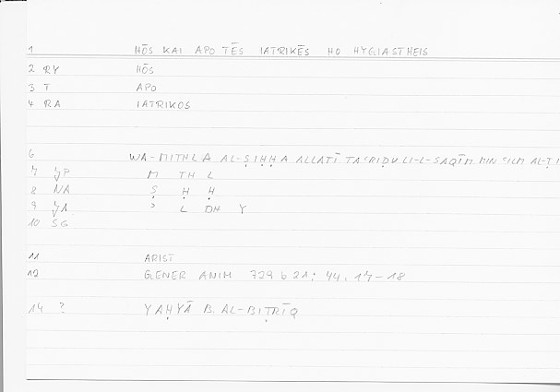 1 HŌS KAI APO TĒS IATRIKĒS HO HYGIASTHEIS
2 RY HŌS
3 T APO
4 RA IATRIKOS
6 WA-MITHLA AL-ṢIḤḤA ALLATĪ TAʿRIḌU LI-L-SAQĪM MIN ʿILM AL-ṬI
7 M TH L
8 NA Ṣ Ḥ Ḥ
9 ʾ L DH Y
10 SG
11 ARIST
12 GENER ANIM 729 b 21; 44, 17-18
14 ? YAḤYĀ B. AL-BIṬRĪQ